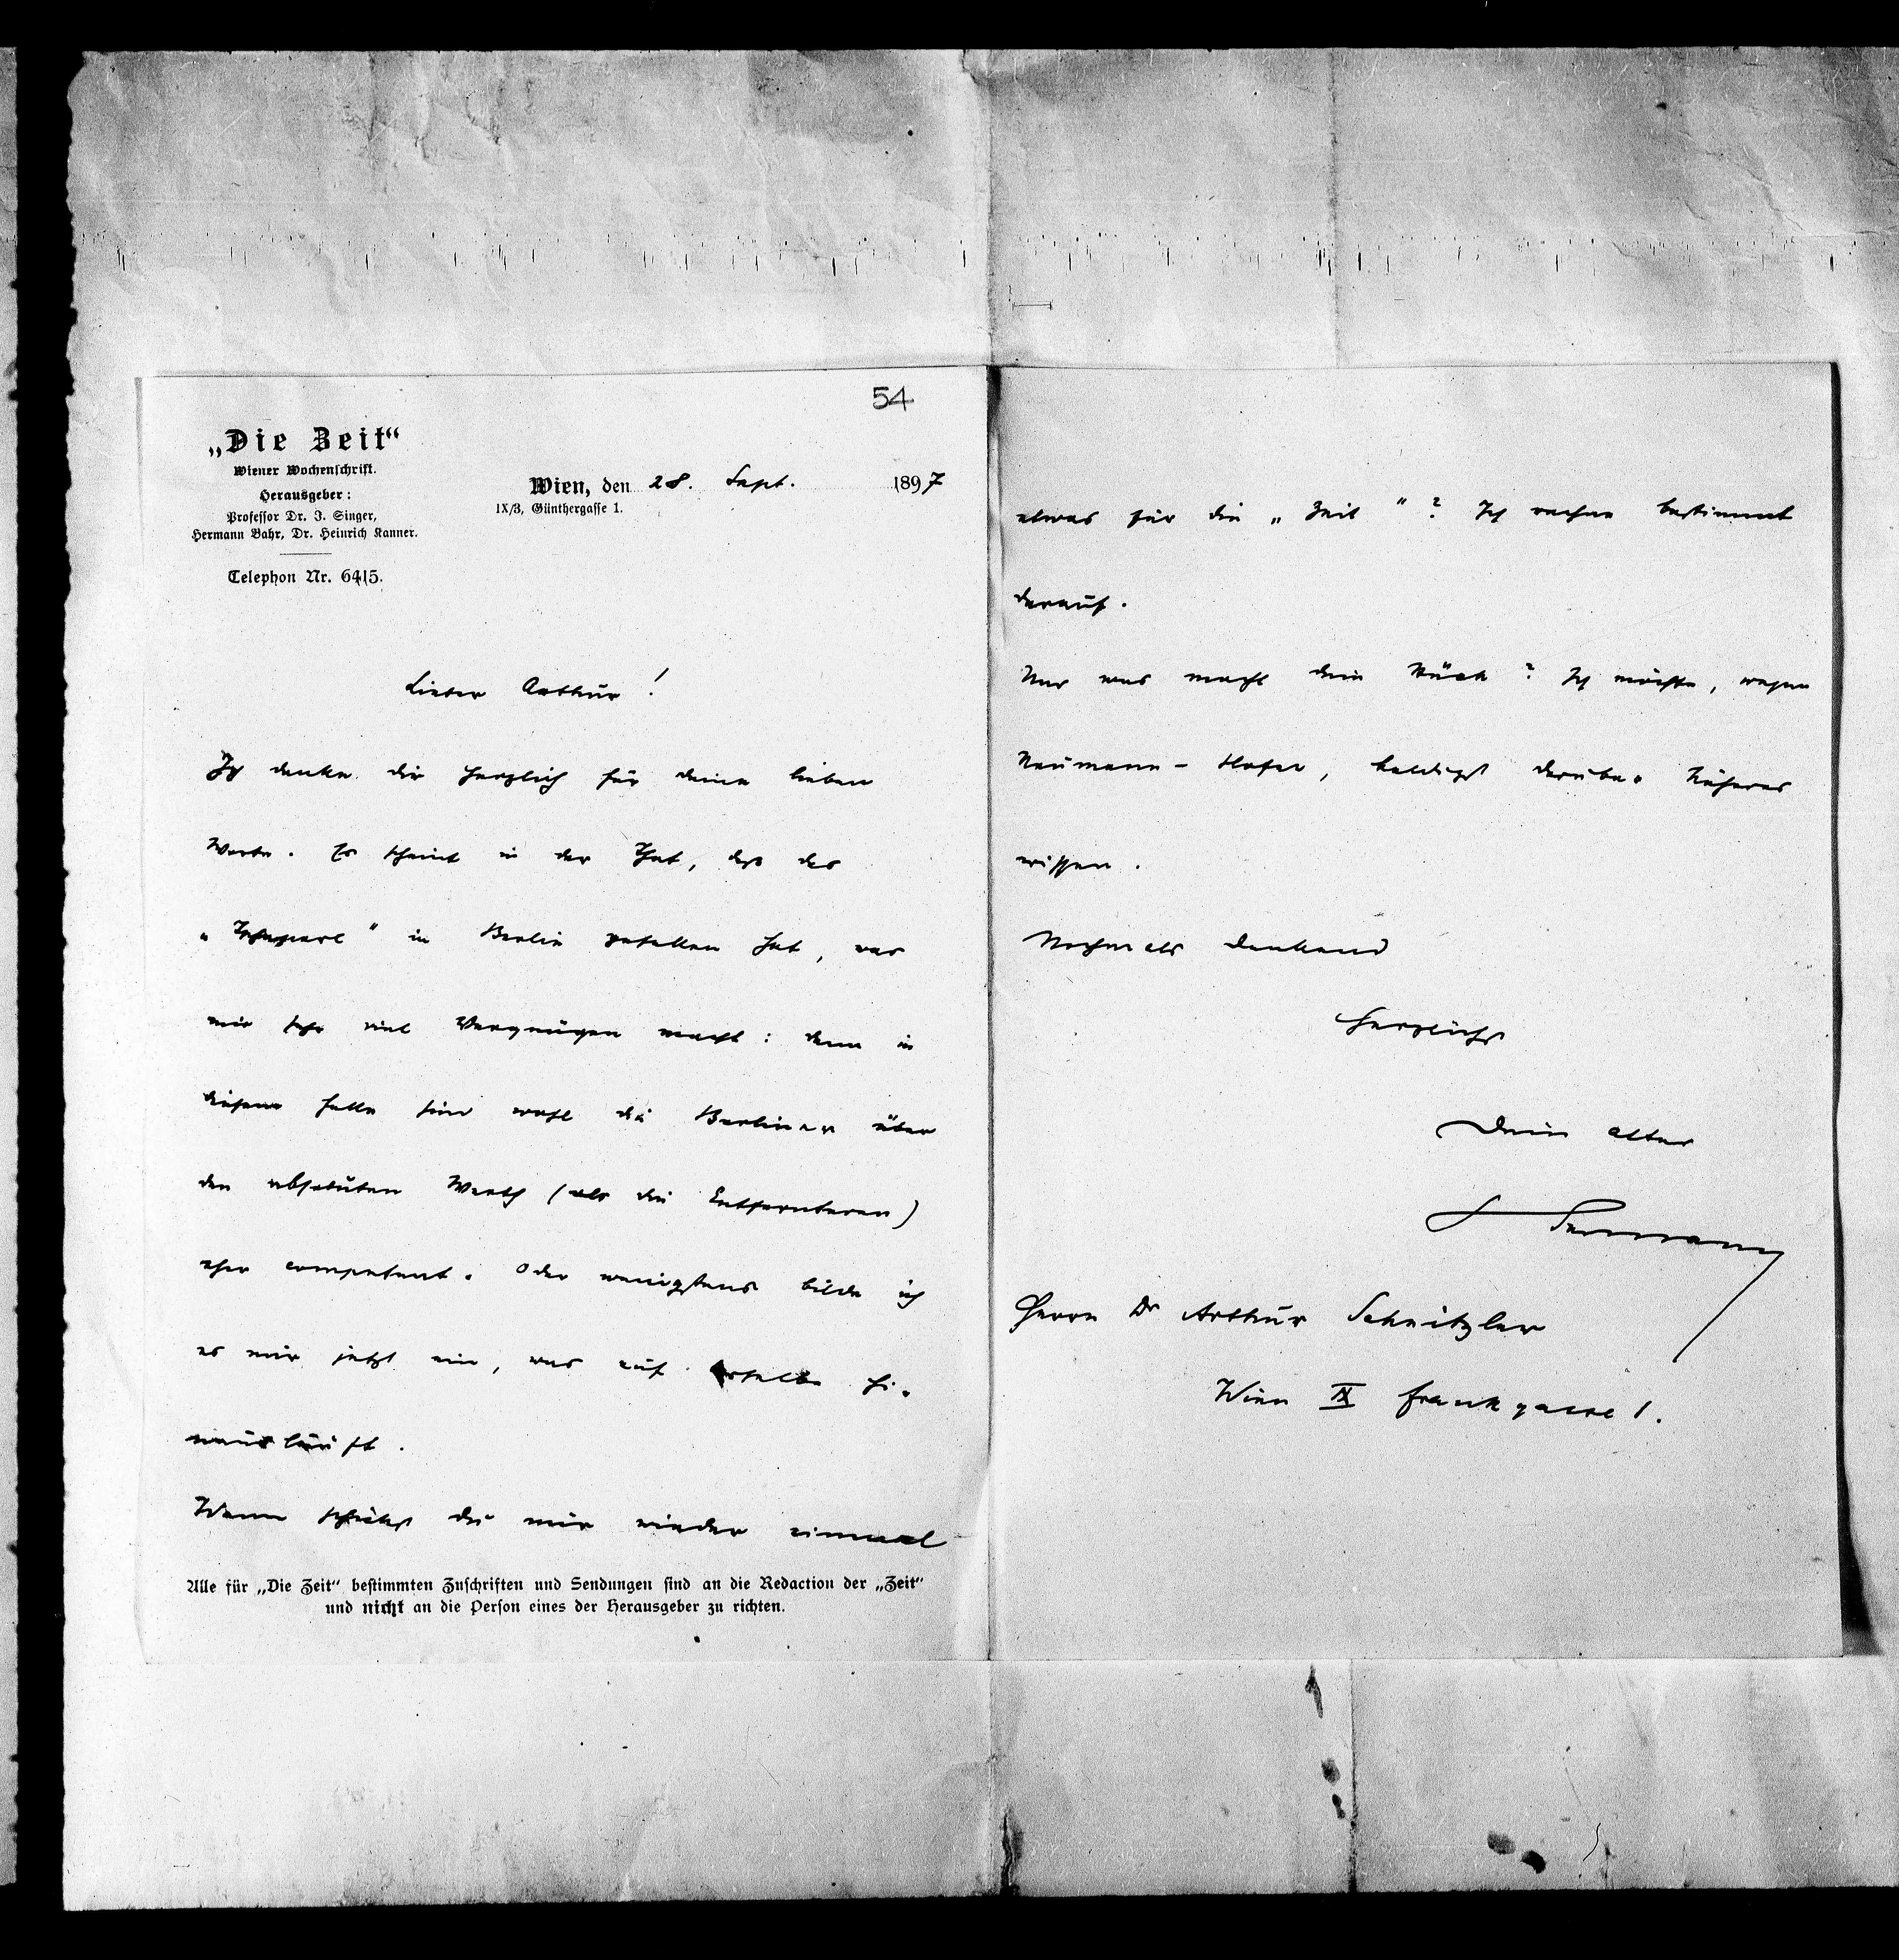 54
„Die Zeit“
Wiener Wochenschrift.
Herausgeber:
Professor Dr. J. Singer,
Hermann Bahr, Dr. Heinrich Kanner.
Telephon Nr. 6415.
Wien, den 28. Sept. 1897
IX/3, Günthergasse 1.
Lieber Arthur!
Ich danke dir herzlich für deine lieben
Worte. Es scheint in der That, daß das
„Tschaperl“ in Berlin gefallen hat, was
mir sehr viel Vergnügen macht: denn in
diesem Falle sind wohl die Berliner über
den absoluten Werth (als die Entfernteren)
eher competent. Oder wenigstens bilde ich
es mir jetzt ein, was auf dasselbe hi-
nausläuft.
Wann schickst du mir wieder einmal
Alle für „Die Zeit“ bestimmten Zuschriften und Sendungen sind an die Redaction der „Zeit“
und nicht an die Person eines der Herausgeber zu richten.
etwas für die „Zeit“? Ich rechne bestimmt
darauf.
was macht dein Stück? Ich möchte, wegen
Neumann-Hofer, baldigst darüber Näheres
wissen.
Nochmals dankend
herzlichst
Dein alter
Hermann
Herrn Dr Arthur Schnitzler
Wien IX Frankgasse 1.